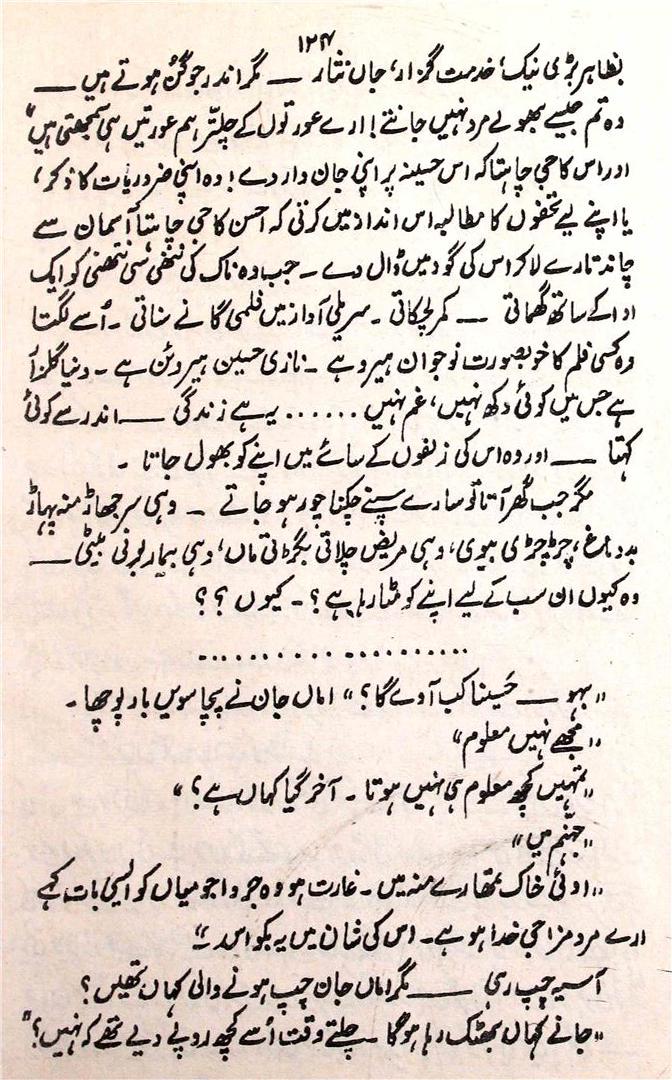 ۱۲۴
بظاہر بڑی نیک، خدمت گزار، جاں نثار — مگر اندر جو گُن ہوتے ہیں —
وہ تم جیسے بھولے مرد نہیں جانتے! ارے عورتوں کے چلتّر ہم عورتیں ہی سمجھتی ہیں"
اور اس کا جی چاہتا کہ اس حسینہ پر اپنی جان وار دے! وہ اپنی ضروریات کا ذکر،
یا اپنے لیے تحفوں کا مطالبہ اس انداز میں کرتی کہ احسن کا جی چاہتا آسمان سے
چاند تارے لا کر اس کی گود میں ڈال دے ۔ جب وہ ناک کی ننھی سی نتھنی کو ایک
ادا کے ساتھ گھماتی — کمر لچکاتی ۔ سریلی آواز میں فلمی گانے سناتی ۔ اُسے لگتا
وہ کسی فلم کا خوبصورت نوجوان ہیرو ہے ۔ نازی حسین ہیروئن ہے ۔ دنیا گلزار
ہے جس میں کوئی دکھ نہیں، غم نہیں ...... یہ ہے زندگی — اندر سے کوئی
کہتا — اور وہ اس کی زلفوں کے سائے میں اپنے کو بھول جاتا ۔
مگر جب گھر آتا تو سارے سپنے چکنا چور ہو جاتے ۔ وہی سر جھاڑ منہ پہاڑ
بد دماغ، چڑچڑی بیوی، وہی مریض چلاتی بگڑتی ماں، وہی بیمار لورنی بیٹی —
وہ کیوں ان سب کے لیے اپنے کو مٹا رہا ہے؟ ۔ کیوں ؟؟
..................
"بہو — حَسینا کب آوے گا؟" اماں جان نے پچاسویں بار پوچھا ۔
"مجھے نہیں معلوم"
"تمہیں کچھ معلوم ہی نہیں ہوتا ۔ آخر گیا کہاں ہے؟"
"جہنّم میں"
"اوئی خاک تمھارے منہ میں ۔ غارت ہو وہ جروا جو میاں کو ایسی بات کہے
ارے مرد مزاجی خدا ہوے ہے ۔ اس کی شان میں یہ بکواس ۔"
آسیہ چپ رہی — مگر اماں جان چپ ہونے والی کہاں تھیں؟
"جانے کہاں بھٹک رہا ہوگا ۔ چلتے وقت اُسے کچھ روپے دیے تھے کہ نہیں؟"